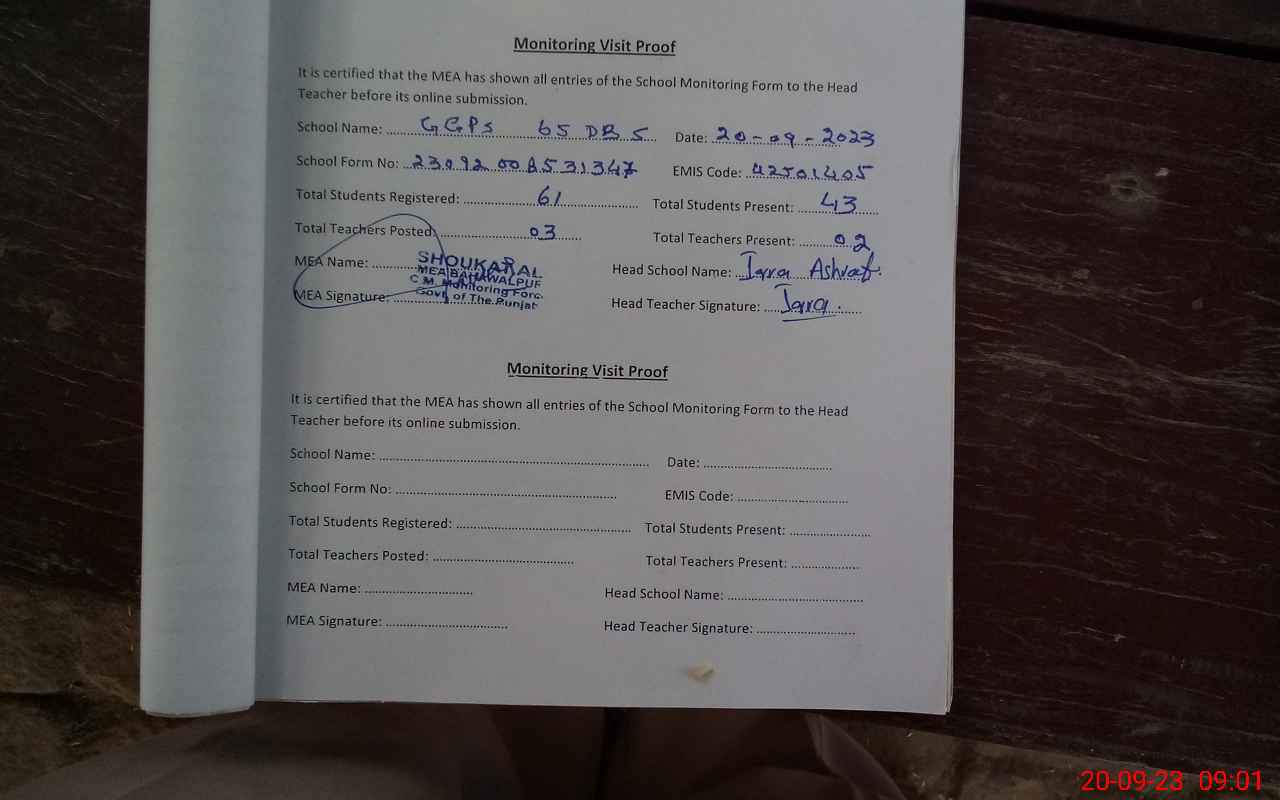 Monitoring Visit Proof
It is certified that the MEA has shown all entries of the School Monitoring Form to the Head
Teacher before its online submission.
School Name: GGPS 65 DB S Date: 20-09-2023
School Form No: 23092 00 A531347 EMIS Code: 42501405
Total Students Registered: 61 Total Students Present: 43
Total Teachers Posted: 03 Total Teachers Present: 02
MEA Name: SHOUKAR AL Head School Name: Iqra Ashraf.
MEA BAHAWALPUR
C.M. Monitoring Forc
Govt. of The Punjab
MEA Signature: Head Teacher Signature: Iqra.
Monitoring Visit Proof
It is certified that the MEA has shown all entries of the School Monitoring Form to the Head
Teacher before its online submission.
School Name: Date:
School Form No: EMIS Code:
Total Students Registered: Total Students Present:
Total Teachers Posted: Total Teachers Present:
MEA Name: Head School Name:
MEA Signature: Head Teacher Signature:
20-09-23 09:01